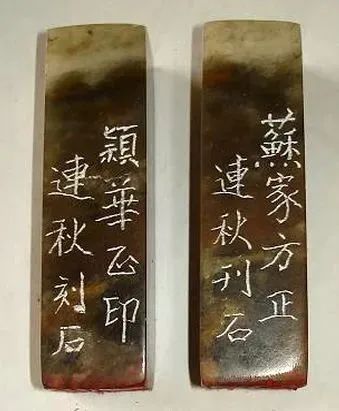 蘇家方正
連秋刊石
穎華正印
連秋刻石